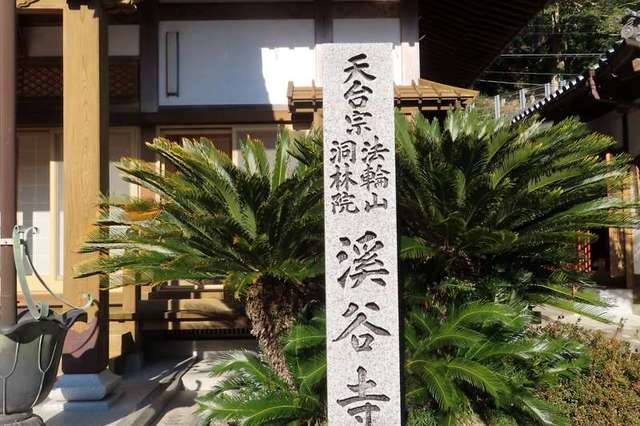 天台宗
法輪山
洞林院
渓谷寺